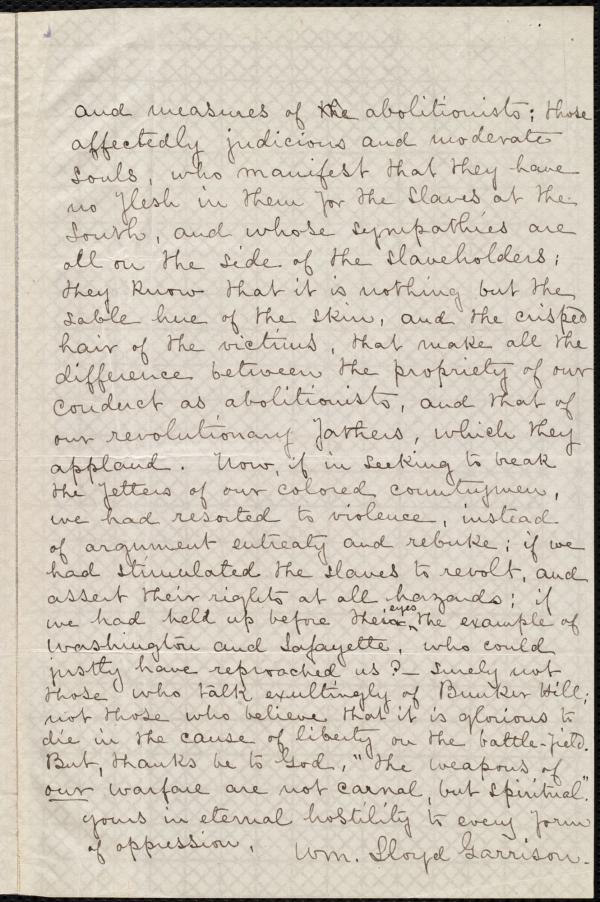 and measures of the abolitionists; those
affectedly judicious and moderate
souls, who manifest that they have
no flesh in them for the slaves at the
South, and whose sympathies are
all on the side of the slaveholders;
they know that it is nothing but the
sable hue of the skin, and the crisped
hair of the victims, that make all the
difference between the propriety of our
conduct as abolitionists, and that of
our revolutionary fathers, which they
applaud. Now, if in seeking to break
the fetters of our colored countrymen,
we had resorted to violence, instead
of argument entreaty and rebuke; if we
had stimulated the slaves to revolt, and
assert their rights at all hazards; if
we had held up before their eyes the example of
Washington and Lafayette, who could
justly have reproached us? — Surely not
those who talk exultingly of Bunker Hill;
not those who believe that it is glorious to
die in the cause of liberty on the battle-field.
But, thanks be to God, "the weapons of
our warfare are not carnal, but spiritual".
Yours in eternal hostility to every form
of oppression,
Wm. Lloyd Garrison.